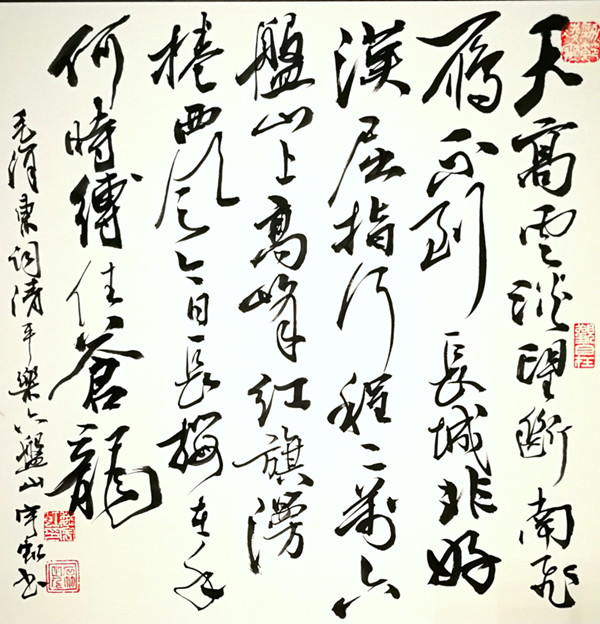 天高雲淡望斷南飛
雁不到長城非好
漢屈指行程二萬六
盤山上高峰紅旗漫
捲西風今日長纓在手
何時縛住蒼龍
毛澤東詞清平樂六盤山书